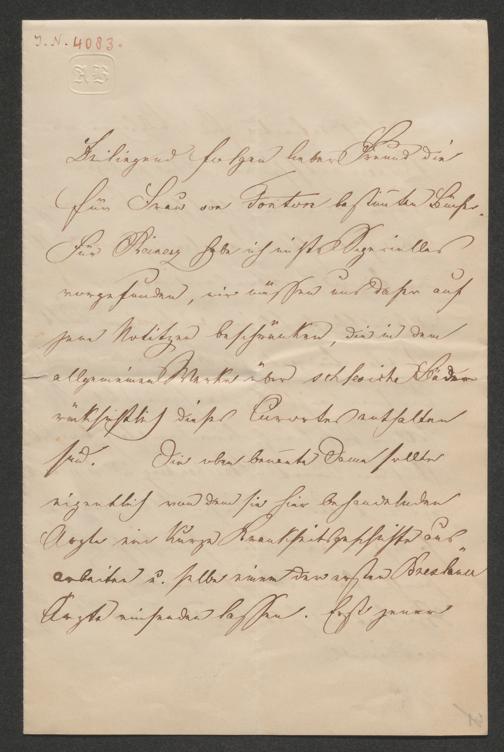 J.N. 4083.
AB
Beiliegend folgen lieber Freund die
für Frau von Tonton bestimten Bücher.
Für Reinerz habe ich nichts Specielles
vorgefunden, wir müssen uns daher auf
jene Notitzen beschränken, die in dem
allgemeinen Werke über schlesische Bäder
rücksichtlich dieses Curortes enthalten
sind. Die oben benante Dame sollte
eigentlich von dem sie hier behandelnden
Arzte eine kurze Krankheitsgeschichte aus
arbeiten u. selbe einem der ersten Breslauer
Ärzte einsenden lassen. Erst jener